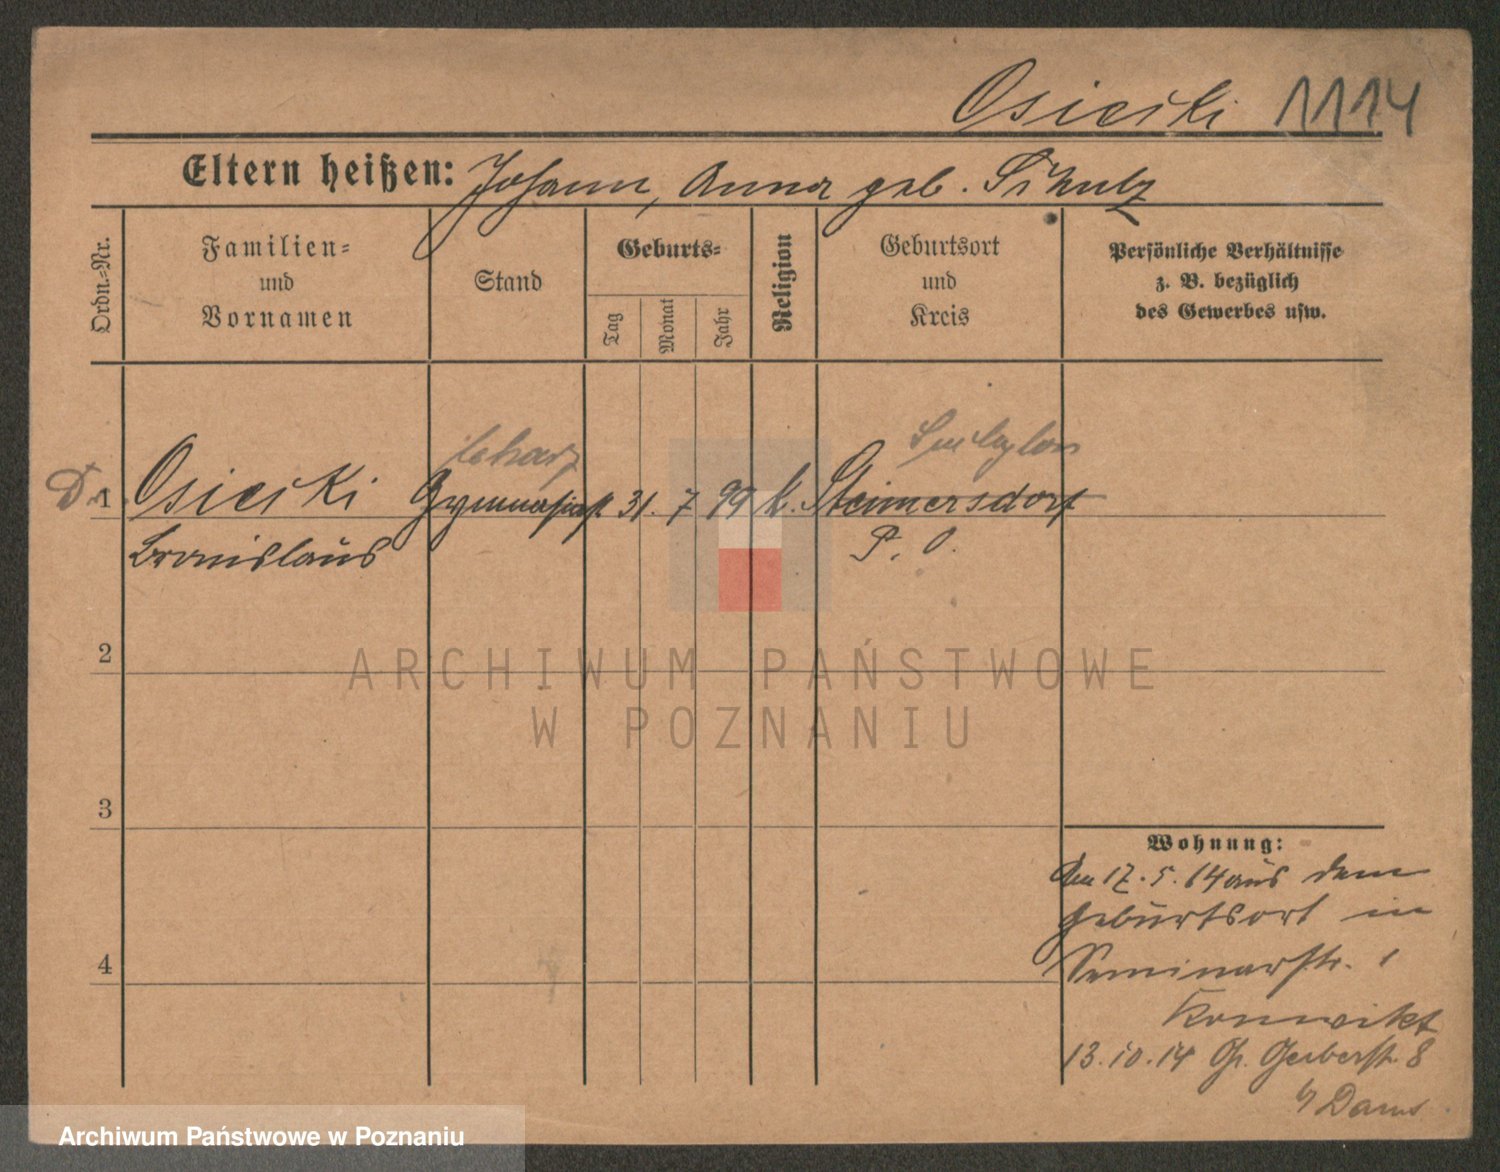 Osiecki 1114
Eltern heißen: Johann, Anna geb. Schulz
Ordn.-Nr.
Familien-
und
Vornamen
Stand
Geburts-
Tag
Monat
Jahr
Religion
Geburtsort
und
Kreis
Persönliche Verhältnisse
z. B. bezüglich
des Gewerbes usw.
1 Osiecki Gymnasiast 31. 7 99 k. Steimersdorf
Bronislaus P. O.
2
ARCHIWUM PAŃSTWOWE
W POZNANIU
3
Wohnung:
Am 17. 5. 14 aus dem
Geburtsort in
4
Seminarstr. 1
Konvikt
13. 10. 14 Gr. Gerberstr. 8
b/
Archiwum Państwowe w Poznaniu